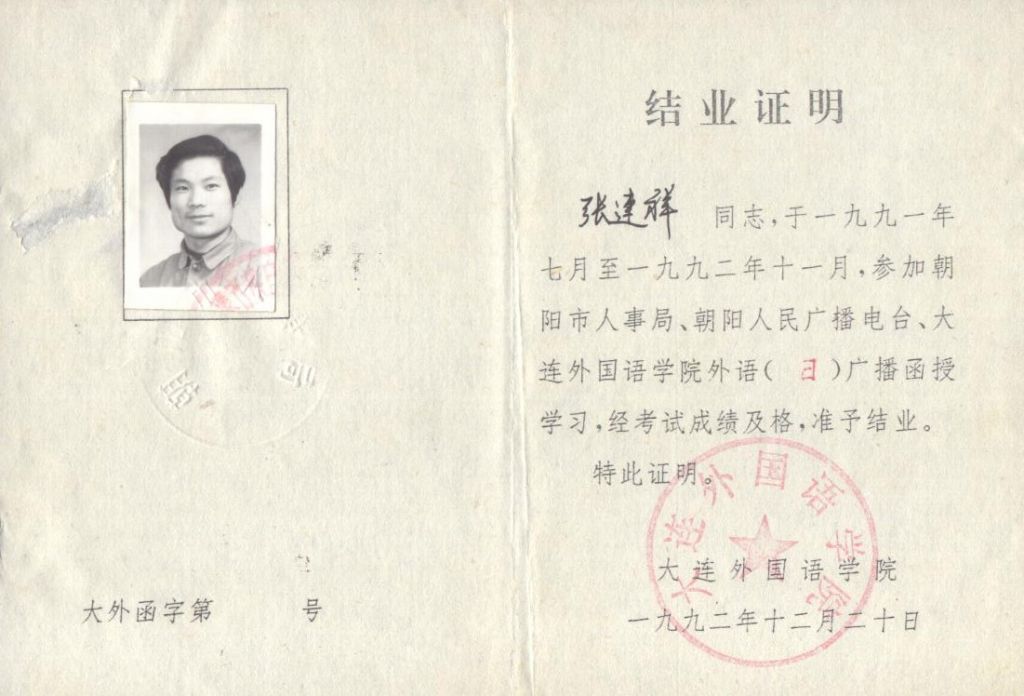 大外函字第 号
结业证明
张建祥 同志,于一九九一年
七月至一九九二年十一月,参加朝
阳市人事局、朝阳人民广播电台、大
连外国语学院外语( 日 )广播函授
学习,经考试成绩及格,准予结业。
特此证明。
大连外国语学院
大连外国语学院
一九九二年十二月二十日